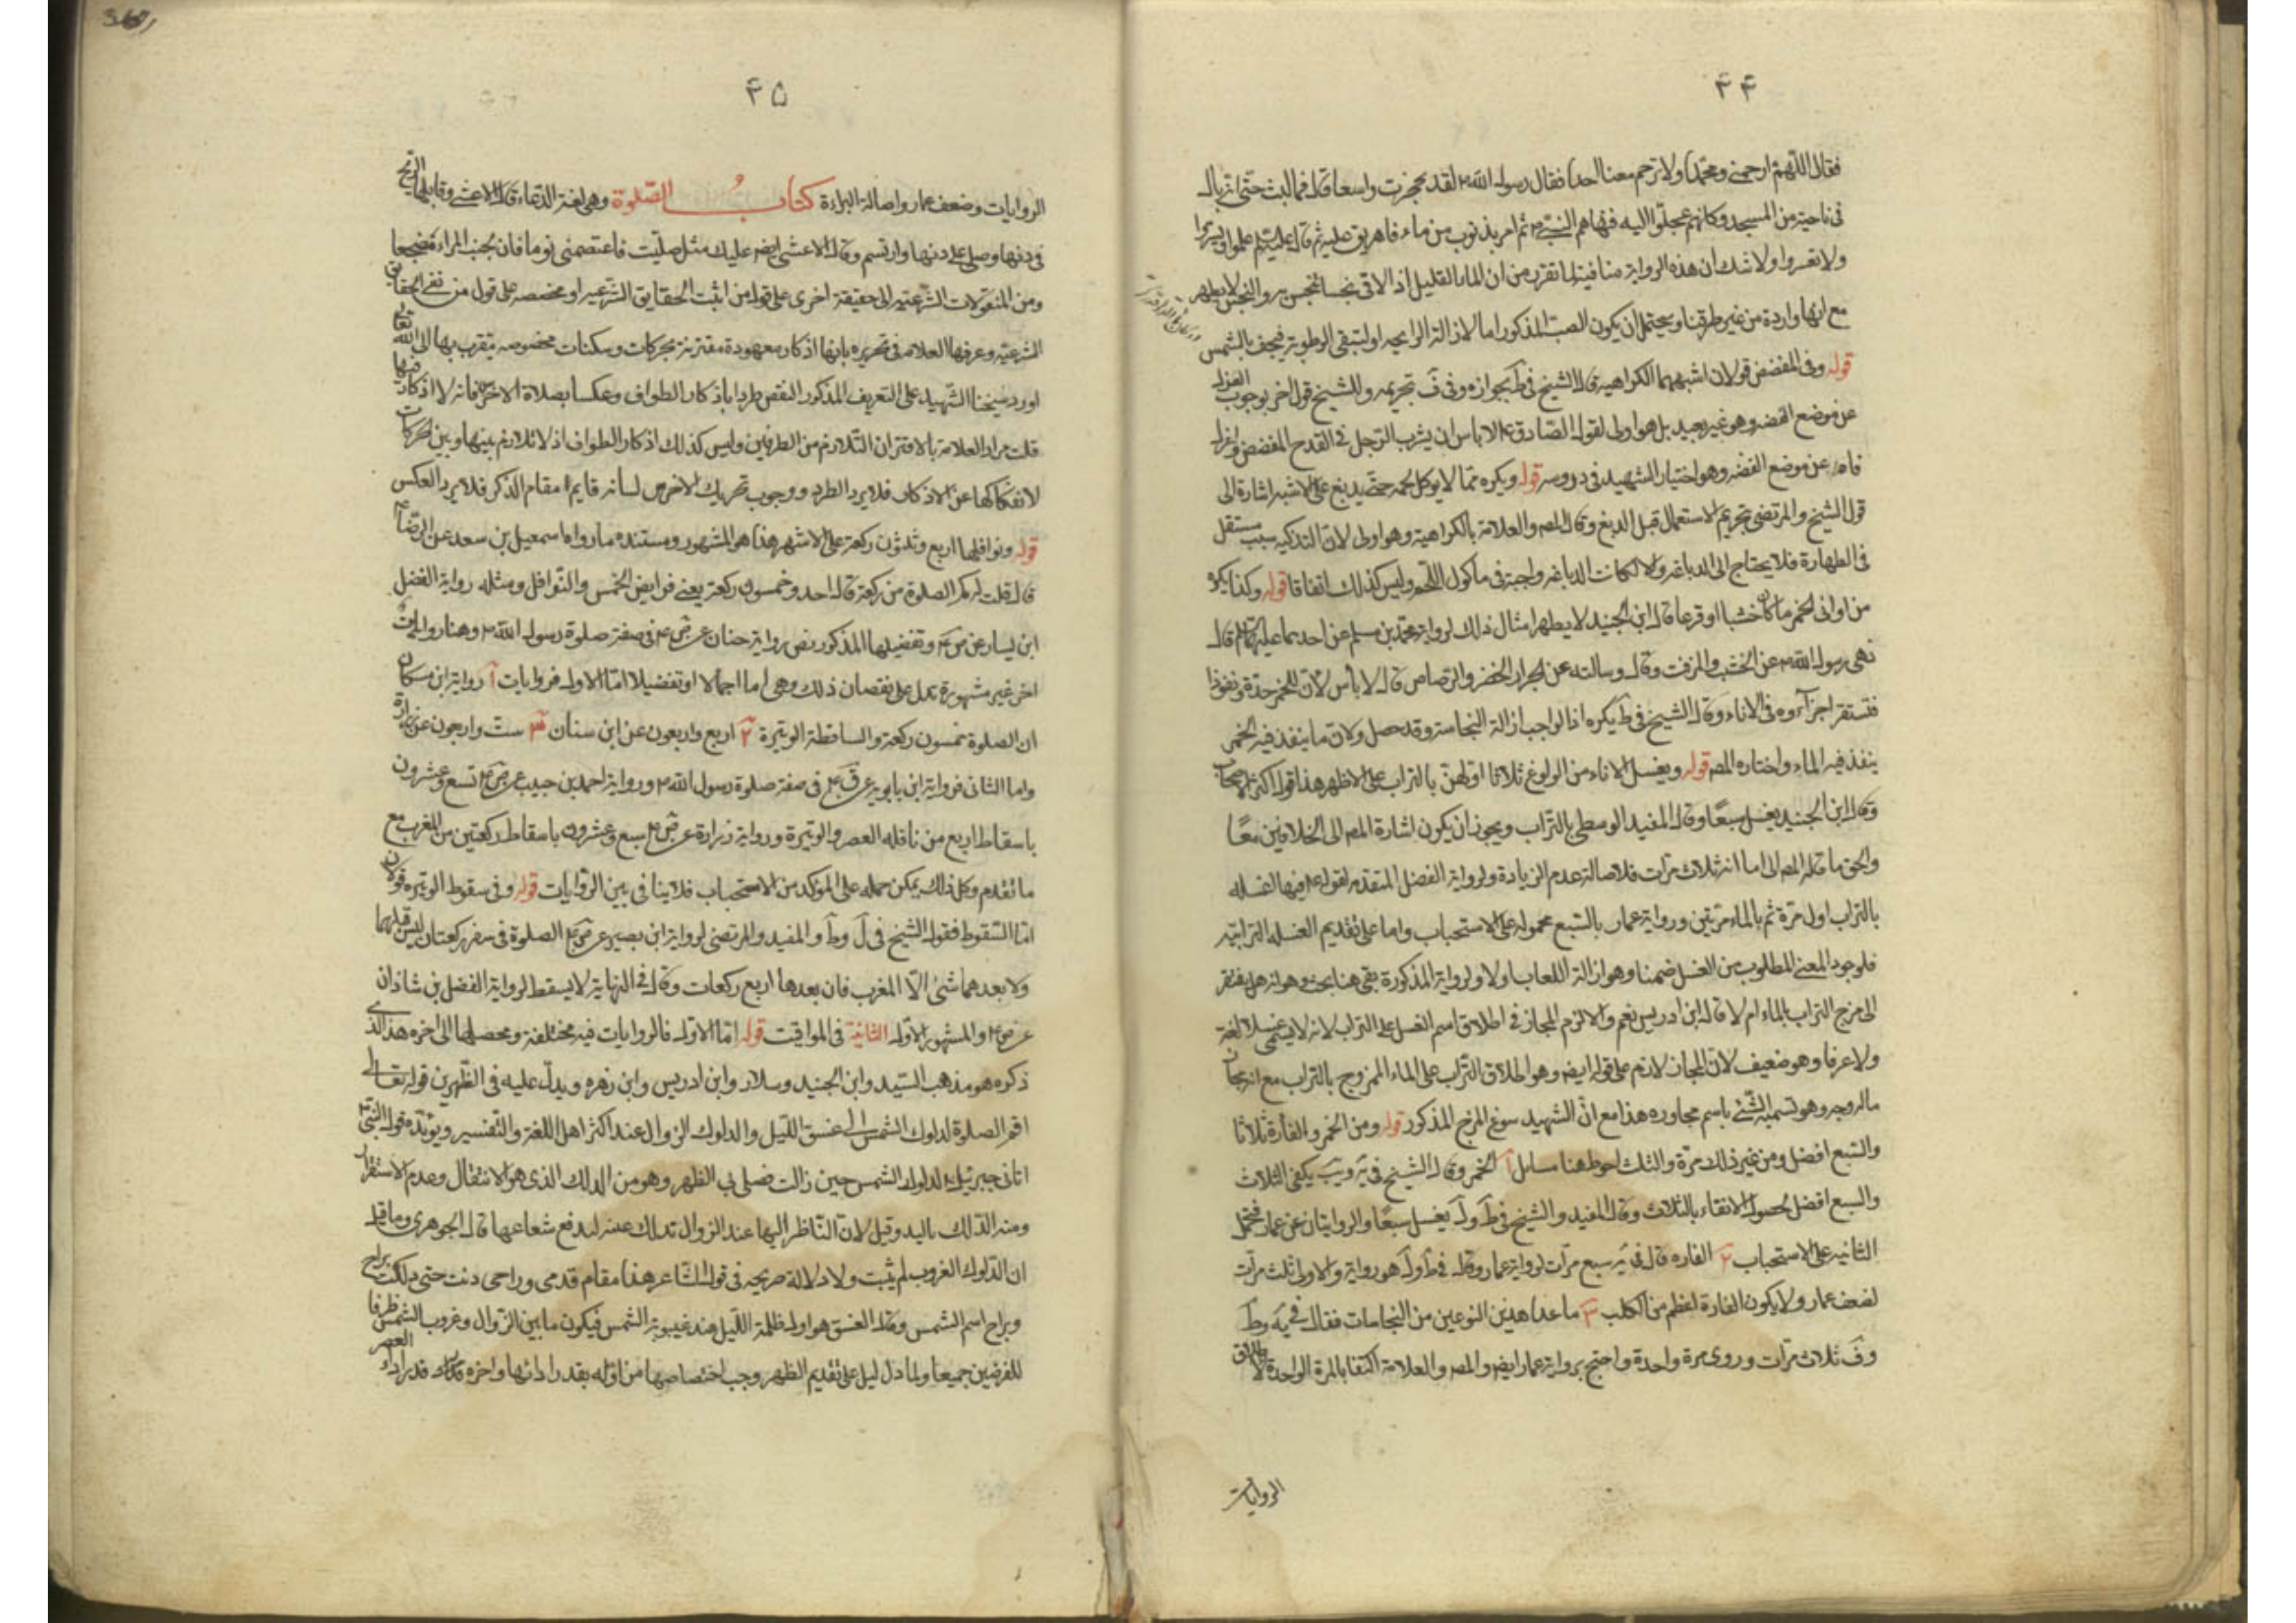 ۴۴
فقال اللهم ارحمني ومحمدا ولا ترحم معنا احدا فقال رسول الله ص لقد تحجرت واسعا قال فما لبث حتى بال
في ناحية من المسجد وكانهم عجلوا اليه فنهاهم النبي ص ثم امر بذنوب من ماء فاهريق عليه ثم قال علموا ويسروا
ولا تعسروا ولا شك ان هذه الرواية منافية لما تقرر من ان الماء القليل اذا لاقى نجسا نجس به والنجس لا يطهر
مع انها واردة من غير طرقنا ويحتمل ان يكون الصب المذكور اما لازالة الرايحه او لتبقى الرطوبة فيجف بالشمس
قوله وفي المفضض قولان اشبههما الكراهية قال الشيخ في ط بجوازه وفي ف تحريمه وللشيخ قول اخر بوجوب العزل
عن موضع الفضه وهو غير بعيد بل هو اولى لقول الصادق ع لا باس ان يشرب الرجل في القدح المفضض واعزل
فاه عن موضع الفضه وهو اختيار الشهيد في دروسه قوله ويكره مما لا يوكل لحمه حتى يدبغ على الاشبه اشارة الى
قول الشيخ والمرتضى بتحريم الاستعمال قبل الدبغ وقال المصه والعلامة بالكراهية وهو اولى لان التذكيه سبب مستقل
في الطهارة فلا يحتاج الى الدباغه والا لكانت الدباغه واجبة في ماكول اللحم وليس كذلك اتفاقا قوله وكذا يكره
من اواني الخمر ما كان خشبا او قرعا قال ابن الجنيد لا يطهر امثال ذلك لرواية محمد بن مسلم عن احدهما عليهما السلم قال
نهى رسول الله ص عن الخشب والمزفت وقال وسالته عن الجرار الخضر والرصاص قال لا بأس لان للخمر حدة ونفوذا
فتستقر اجزآءوه في الاناء وقال الشيخ في ط يكره اذ الواجب ازالة النجاسة وقد حصل ولان ما ينفذ فيه الخمر
ينفذ فيه الماء واختاره المصه قوله ويغسل الاناء من الولوغ ثلاثا اولهن بالتراب على الاظهر هذا قول اكثر الاصحاب
وقال ابن الجنيد يغسل سبعًا وقال المفيد الوسطى بالتراب ويجوز ان يكون اشارة المصه الى الخلافين معًا
والحق ما قاله المصه اما انه ثلاث مرات فلاصالة عدم الزيادة ولرواية الفضل المتقدمه لقوله ع فيها اغسله
بالتراب اول مرة ثم بالماء مرتين ورواية عمار بالسبع محموله على الاستحباب واما على تقديم الغسله الترابيه
فلوجود المعنى المطلوب من الغسل ضمنا وهو ازالة اللعاب اولا ولرواية المذكورة بقي هنا بحث وهو انه هل يفتقر
الى مزج التراب بالماء ام لا قال ابن ادريس نعم والا لزم المجاز في اطلاق اسم الغسل على التراب لانه لا يسمى غسلا لغة
ولا عرفا وهو ضعيف لان المجاز لازم على قوله ايضه وهو اطلاق التراب على الماء الممزوج بالتراب مع انه مجاز
ماله وجه وهو تسمية الشئ باسم مجاوره هذا مع ان الشهيد سوغ المزج المذكور قوله ومن الخمر والفارة ثلاثا
والسبع افضل ومن غير ذلك مرة والثلث احوط هنا مسايل آ الخمر وقال الشيخ في يه ويب يكفي الثلاث
والسبع افضل لحصول الانقاء بالثلاث وقال المفيد والشيخ في ط ول يغسل سبعًا والروايتان عن عمار فتحمل
الثانيه على الاستحباب ٢ الفاره قال في يه سبع مرات لرواية عمار وقال في ط ول هو رواية والاولى ثلث مرات
لضعف عمار ولا يكون الفارة اعظم من الكلب ٣ ما عدا هذين النوعين من النجاسات فقال في يه وط
وف ثلاث مرات وروى مرة واحدة واحتج برواية عمار ايضه والمصه والعلامة اكتفا بالمرة الواحدة لاطلاق
الروايات
۴۵
الروايات وضعف عمار واصالة البراءة كتاب الصلوة وهي لغة الدعاء قال الاعشى وقابلها الريح
في دنها وصلى على دنها وارتسم وقال الاعشى ايضه عليك مثل صليت فاعتصمني نوما فان لجنب المراء مضجعا
ومن المنقولات الشرعيه الى حقيقة اخرى على قول من اثبت الحقايق الشرعيه او مخصصه على قول من نفى الحقايق
الشرعيه وعرفها العلامه في تحريره بانها اذكار معهودة مقترنة بحركات وسكنات مخصوصه يتقرب بها الى الله تعالى
اورد شيخنا الشهيد على التعريف المذكور النقص طردا باذكار الطواف وعكسا بصلاة الاخرس فانه لا اذكار فيها
قلت مراد العلامة بالاقتران التلازم من الطرفين وليس كذلك اذكار الطواف اذ لا تلازم بينها وبين الحركات
لانفكاكها عن الاذكار فلا يرد الطرد ووجوب تحريك الاخرس لسانه قايم مقام الذكر فلا يرد العكس
قوله ونوافلها اربع وثلثون ركعة على الاشهر هذا هو المشهور ومستنده ما رواه اسمعيل بن سعد عن الرضا ع
قال قلت له كم الصلوة من ركعة قال احد وخمسون ركعة يعني فرايض الخمس والنوافل ومثله رواية الفضل
ابن يسار عن ص ع وتفصيلها المذكور نص رواية حنان عن ص ع في صفة صلوة رسول الله ص وهنا روايات
اخر غير مشهورة تدل على نقصان ذلك وهي اما اجمالا او تفصيلا اما الاول فروايات آ رواية ابن مسكان
ان الصلوة خمسون ركعة والساقطة الوتيرة ٢ اربع واربعون عن ابن سنان ٣ ست واربعون عن زرارة
واما الثاني فرواية ابن بابويه عن ق ع في صفة صلوة رسول الله ص ورواية احمد بن حبيب عن ض ع تسع وعشرون
باسقاط اربع من نافله العصر والوتيرة ورواية زرارة عن ص ع سبع وعشرون باسقاط ركعتين من المغرب مع
ما تقدم وكل ذلك يمكن حمله على المؤكد من الاستحباب فلا ينافي بين الروايات قوله وفي سقوط الوتيره قولان
اما السقوط فقول الشيخ في ل وط والمفيد والمرتضى لرواية ابن بصير عن ص ع الصلوة في سفر ركعتان ليس قبلهما
ولا بعدهما شئ الا المغرب فان بعدها اربع ركعات وقال في النهاية لا يسقط لرواية الفضل بن شاذان
عن ض ع والمشهور الاول الثانية في المواقيت قوله اما الاول فالروايات فيه مختلفة ومحصلها الى اخره هذا الذي
ذكره هو مذهب السيد وابن الجنيد وسلار وابن ادريس وابن زهره ويدل عليه في الظهرين قوله تعالى
اقم الصلوة لدلوك الشمس الى غسق الليل والدلوك الزوال عند اكثر اهل اللغة والتفسير ويؤيده قول النبي ص
اتاني جبرئيل لدلوك الشمس حين زالت فصلى بي الظهر وهو من الدلك الذي هو الانتقال وعدم الاستقرار
ومنه الدلك باليد وقيل لان الناظر اليها عند الزوال تدلك عينه لدفع شعاعها قال الجوهري وما قيل
ان الدلوك الغروب لم يثبت ولا دلالة صريحه في قول الشاعر هذا مقام قدمي وراحى دنت حتى دلكت براح
وبراح اسم الشمس وقال الغسق هو اول ظلمة الليل عند غيبوبة الشمس فيكون ما بين الزوال وغروب الشمس ظرفا
للفرضين جميعا ولما دل دليل على تقديم الظهر وجب اختصاصها من اوله بقدر ادائها واخره كذلك قدر اداء العصر